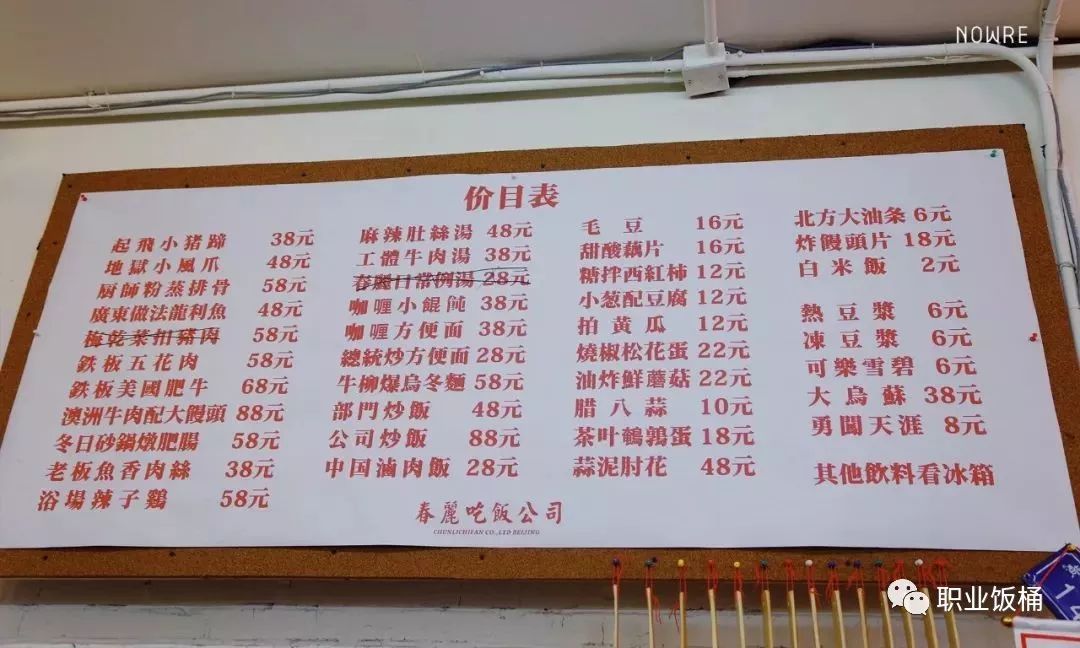 NOWRE
价目表
起飛小猪蹄 38元
地獄小風爪 48元
厨師粉蒸排骨 58元
廣東做法龍利魚 48元
梅乾菜扣豬肉 58元
鉄板五花肉 58元
鉄板美國肥牛 68元
澳洲牛肉配大饅頭 88元
冬日砂鍋燉肥腸 58元
老板魚香肉絲 38元
浴場辣子鷄 58元
麻辣肚絲湯 48元
工體牛肉湯 38元
春麗日常例湯 28元
咖喱小餛飩 38元
咖喱方便面 38元
總統炒方便面 28元
牛柳爆烏冬麵 58元
部門炒飯 48元
公司炒飯 88元
中国滷肉飯 28元
毛豆 16元
甜酸藕片 16元
糖拌西紅柿 12元
小葱配豆腐 12元
拍黄瓜 12元
燒椒松花蛋 22元
油炸鮮蘑菇 22元
腊八蒜 10元
茶叶鵪鶉蛋 18元
蒜泥肘花 48元
北方大油条 6元
炸饅頭片 18元
白米飯 2元
熱豆漿 6元
凍豆漿 6元
可樂雪碧 6元
大烏蘇 38元
勇闖天涯 8元
其他飲料看冰箱
春麗吃飯公司
CHUNLICHIFAN CO.,LTD BEIJING
职业饭桶